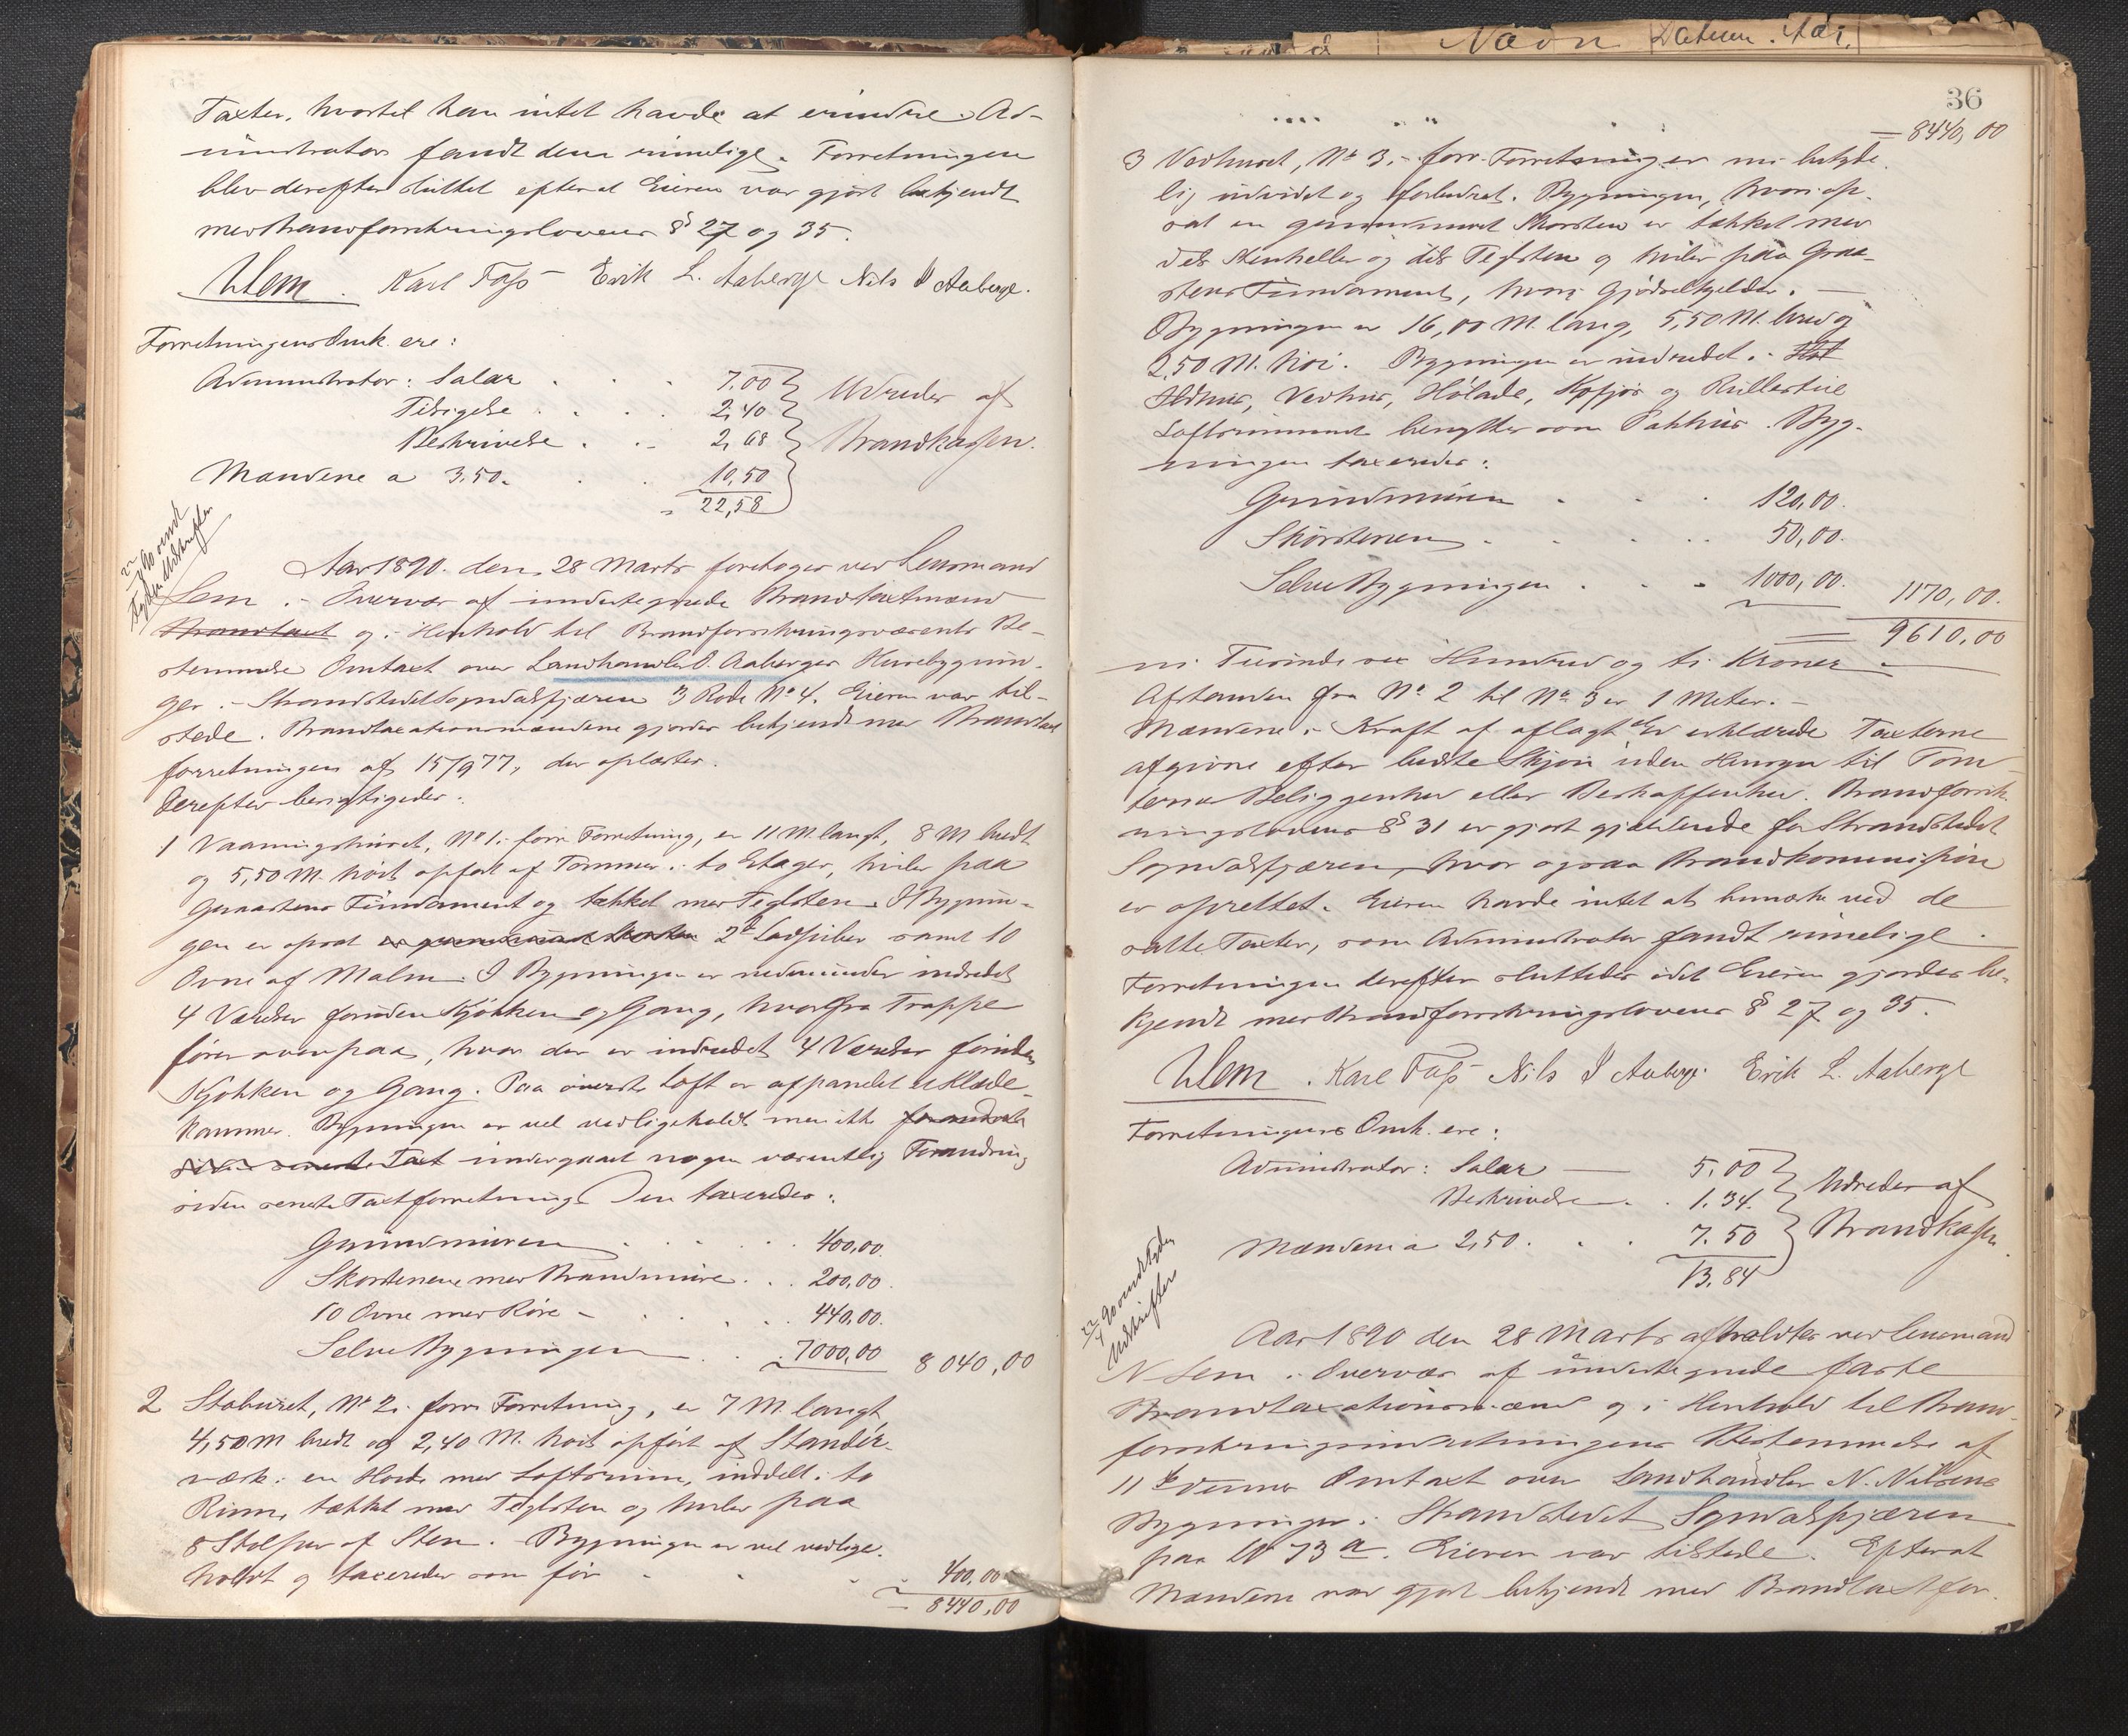 Taxter, hvortil han intet havde at erindre. Ad-
ministrator fandt dem rimelige. Forretningen
blev derefter sluttet efterat Eieren var gjort bekjendt
med Brandforsikringslovens § 27 og 35.
NSem. Karl Foss Erik L. Aaberge Nils I Aaberge.
Forretningens Omk. ere:
Administrator: Salær . . . 7.00
Tilsigelse . . . 2,40
Beskrivelse . . 2,68
Mændene a 3,50. . . 10,50
22,58
Udredes af
Brandkassen.
22/4 90 sendt
Fogden Udskriften
Aar 1890. den 28 Marts foretoges ved Lensmand
Sem i Overvær af undertegnede Brandtaxtmænd
Brandtaxt og i Henhold til Brandforsikringsvæsenets Be-
stemmelse Omtaxt over Landhandler O. Aaberges Husebygnin-
ger i Strandstedet Sogndalsfjæren 3 Rode No 4. Eieren var til-
stede. Brandtaxationsmændene gjordes bekjendt med Brandtaxt
forretningen af 15/9 77, der oplæstes.
Derefter besigtigedes:
1 Vaaningshuset, No 1 i forr. Forretning, er 11 M. langt, 8 M bredt
og 5,50 M. høit opført af Tømmer i to Etager, hviler paa
Graastens Fundament og tækket med Teglsten. I Bygnin-
gen er opsat 2de Ladpiber samt 10
Ovne af Malm. I Bygningen er nedenunder indredet
4 Værelser foruden Kjøkken og Gang, hvorfra Trappe
fører ovenpaa, hvor der er indredet 4 Værelser foruden
Kjøkken og Gang. Paa øverste Loft er afpanelet et Klæde-
kammer. Bygningen er vel vedligeholdt men ikke forandret
siden seneste Taxt undergaaet nogen væsentlig Forandring
siden seneste Taxtforretning. Den taxeredes:
Grundmuren . . . 400,00.
Skorstenene med Brandmure . . 200,00.
10 Ovne med Rør . . . 440,00.
Selve Bygningen . . 7000,00 8 040,00
2 Staburet, No 2 i forr. Forretning, er 7 M. langt,
4,50 M bredt og 2,40 M. høit opført af Stander-
værk i en Høide med Loftsrum, inddelt i to
Rum, tækket med Teglsten og hviler paa
8 Stolper af Sten. Bygningen er vel vedlige-
holdt og taxeredes som før . . . 400,00
8440,00
Navn Datum. Aar.
36
8440,00
3 Vedhuset, No 3 i forr. Forretning er nu betyde-
lig udvidet og forbedret. Bygningen, hvori op-
sat en gjennemmuret Skorsten er tækket med
dels Stenheller og dels Teglsten og hviler paa Graa-
stens Fundament, hvori Gjødselkjelder.
Bygningen er 16,00 M. lang, 5,50 M. bred og
2,50 M. høi. Bygningen er indredet i
Ildhus, Vedhus, Hølade, Kofjøs og Rullestue
Loftsrummet benyttes som Pakhus. Byg-
ningen taxeredes:
Grundmuren . . . 120,00.
Skorstenen . . . . 50,00.
Selve Bygningen . . . 1000,00. 1170,00.
9610,00
ni Tusinde sex Hundred og ti Kroner
Afstanden fra No 2 til No 3 er 1 Meter.
Mændene i Kraft af aflagt Ed erklærede Taxterne
afgivne efter bedste Skjøn uden Hensyn til Tom-
ternes Beliggenhed eller Beskaffenhed. Brandforsik-
ringslovens § 31 er gjort gjældende for Strandstedet
Sogndalsfjæren, hvor ogsaa Brandkommission
er oprettet. Eieren havde intet at bemærke ved de
satte Taxter, som Administrator fandt rimelige.
Forretningen derefter sluttedes idet Eieren gjordes be-
kjendt med Brandforsikringslovens § 27 og 35.
NSem. Karl Foss Nils I Aaberge. Erik L. Aaberge
Forretningens Omk. ere:
Administrator: Salær 5.00
Beskrivelse . . 1.34.
Mændene a 2,50. . . 7.50
13.84
Udredes af
Brandkassen.
22/4 90 sendt Fogden
Udskriften
Aar 1890 den 28 Marts afholdtes ved Lensmand
N Sem i Overvær af undertegnede faste
Brandtaxationsmænd og i Henhold til Brand-
forsikringsindretningens Bestemmelse af
11te dennes Omtaxt over Landhandler N. Nilsens
Bygninger i Strandstedet Sogndalsfjæren
paa No 73 a. Eieren var tilstede. Efterat
Mændene var gjort bekjendt med Brandtaxtfor-